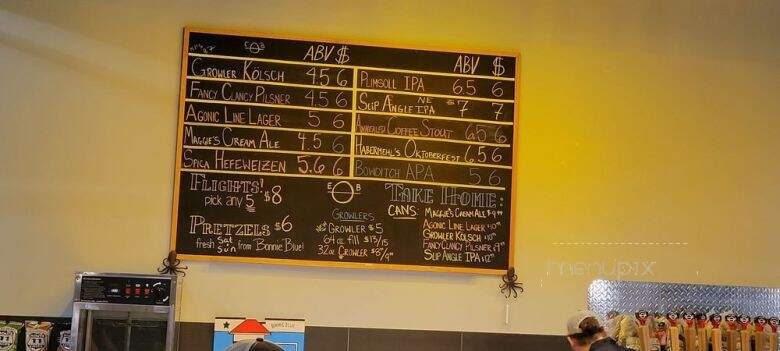 ABV $
GROWLER KÖLSCH 4.5 6
FANCY CLANCY PILSNER 4.5 6
AGONIC LINE LAGER 5 6
MAGGIE'S CREAM ALE 4.5 6
SPICA HEFEWEIZEN 5.6 6
ABV $
PLIMSOLL IPA 6.5 6
SLIP ANGLE NE IPA 7 7
ANNEALED COFFEE STOUT 6.5 6
HABERMEHL'S OKTOBERFEST 6.5 6
BOWDITCH APA 5 6
FLIGHTS!
pick any 5 $8
PRETZELS $6
fresh Sat Sun from Bonnie Blue!
E O B
GROWLERS
GROWLER $5
64 oz fill $13/15
32oz GROWLER $8/9
TAKE HOME:
CANS: MAGGIE'S CREAM ALE $9
AGONIC LINE LAGER $10
GROWLER KÖLSCH $10
FANCY CLANCY PILSNER $9
SLIP ANGLE IPA $12
menupix